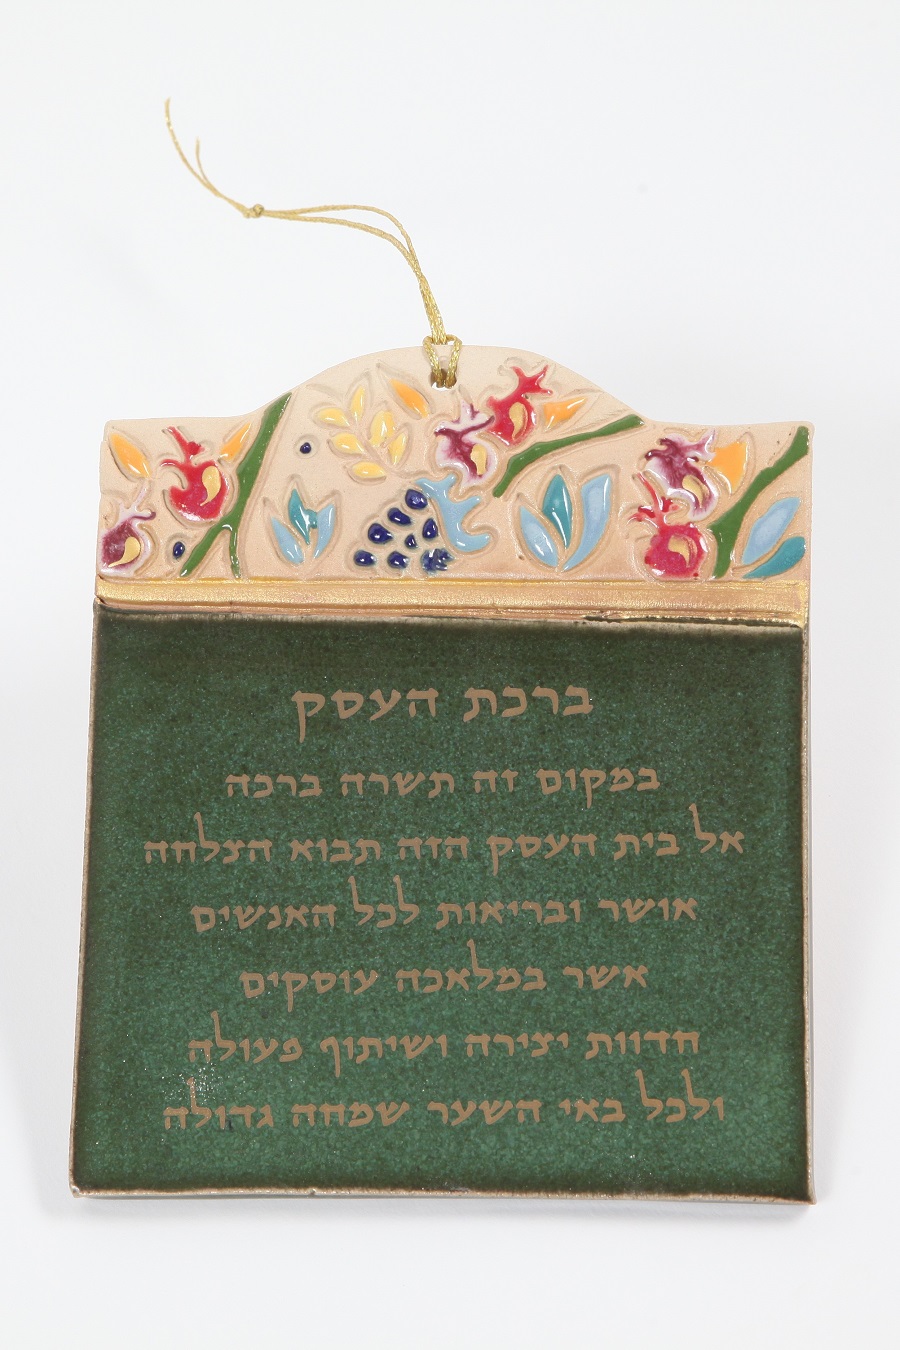 ברכת העסק
במקום זה תשרה ברכה
אל בית העסק הזה תבוא הצלחה
אושר ובריאות לכל האנשים
אשר במלאכה עוסקים
חדוות יצירה ושיתוף פעולה
ולכל באי השער שמחה גדולה